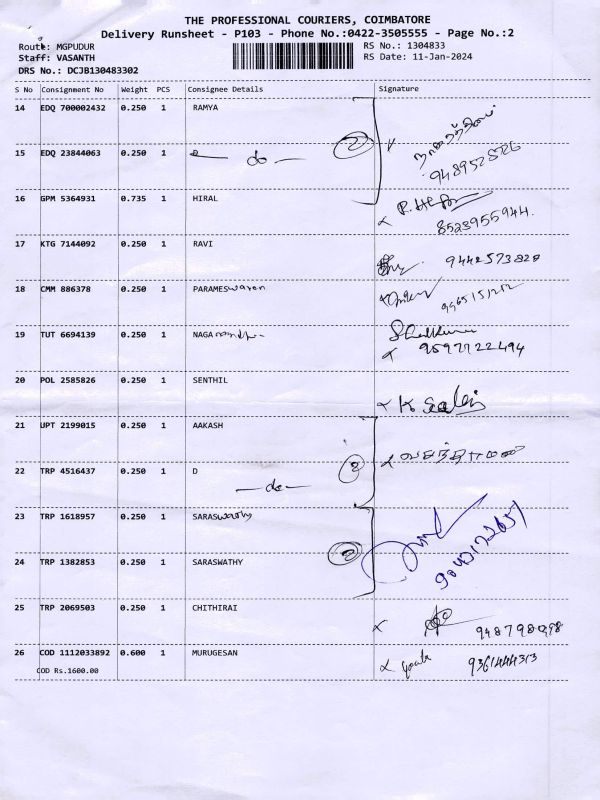 THE PROFESSIONAL COURIERS, COIMBATORE
Delivery Runsheet - P103 - Phone No.:0422-3505555 - Page No.:2
Route: MGPUDUR
RS No.: 1304833
Staff: VASANTH
RS Date: 11-Jan-2024
DRS No.: DCJB130483302
S No Consignment No Weight PCS Consignee Details Signature
14 EDQ 700002432 0.250 1 RAMYA
15 EDQ 23844063 0.250 1 — do — 2
9489528726
16 GPM 5364931 0.735 1 HIRAL
8523955944.
17 KTG 7144092 0.250 1 RAVI 9442573828
18 CMM 886378 0.250 1 PARAMESwaren
19 TUT 6694139 0.250 1 NAGA
9597722494
20 POL 2585826 0.250 1 SENTHIL
21 UPT 2199015 0.250 1 AAKASH
22 TRP 4516437 0.250 1 D 2
— do —
23 TRP 1618957 0.250 1 SARASwathy
24 TRP 1382853 0.250 1 SARASWATHY 2
25 TRP 2069503 0.250 1 CHITHIRAI
26 COD 1112033892 0.600 1 MURUGESAN 9361444313
COD Rs.1600.00